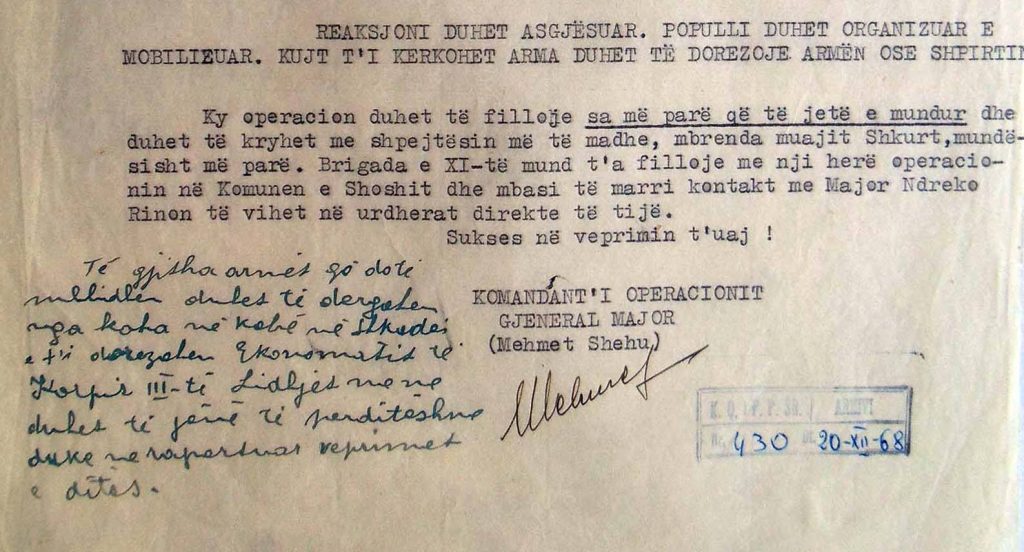 REAKSJONI DUHET ASGJËSUAR. POPULLI DUHET ORGANIZUAR E
MOBILIZUAR. KUJT T'I KERKOHET ARMA DUHET TË DOREZOJE ARMËN OSE SHPIRTIN
Ky operacion duhet të filloje sa më parë që të jetë e mundur dhe
duhet të kryhet me shpejtësin më të madhe, mbrenda muajit Shkurt,mundë-
sisht më parë. Brigada e XI-të mund t'a filloje me nji herë operacio-
nin në Komunen e Shoshit dhe mbasi të marri kontakt me Major Ndreko
Rinon të vihet në urdherat direkte të tijë.
Sukses në veprimin t'uaj !
Të gjitha armët që do të
mblidhen duhet të dergohen
nga koha në kohë në Shkodër
e t'i dorezohen Ekonomatit të
Korpit III-të Lidhjet me ne
duhet të jenë të perditëshme
duke ne raportuar veprimet
e ditës.
KOMANDANT'I OPERACIONIT
GJENERAL MAJOR
(Mehmet Shehu)
Mehmet
K. Q. i P. P. SH. / ARKIVI
Nr. 430 Dt. 20-XII-68